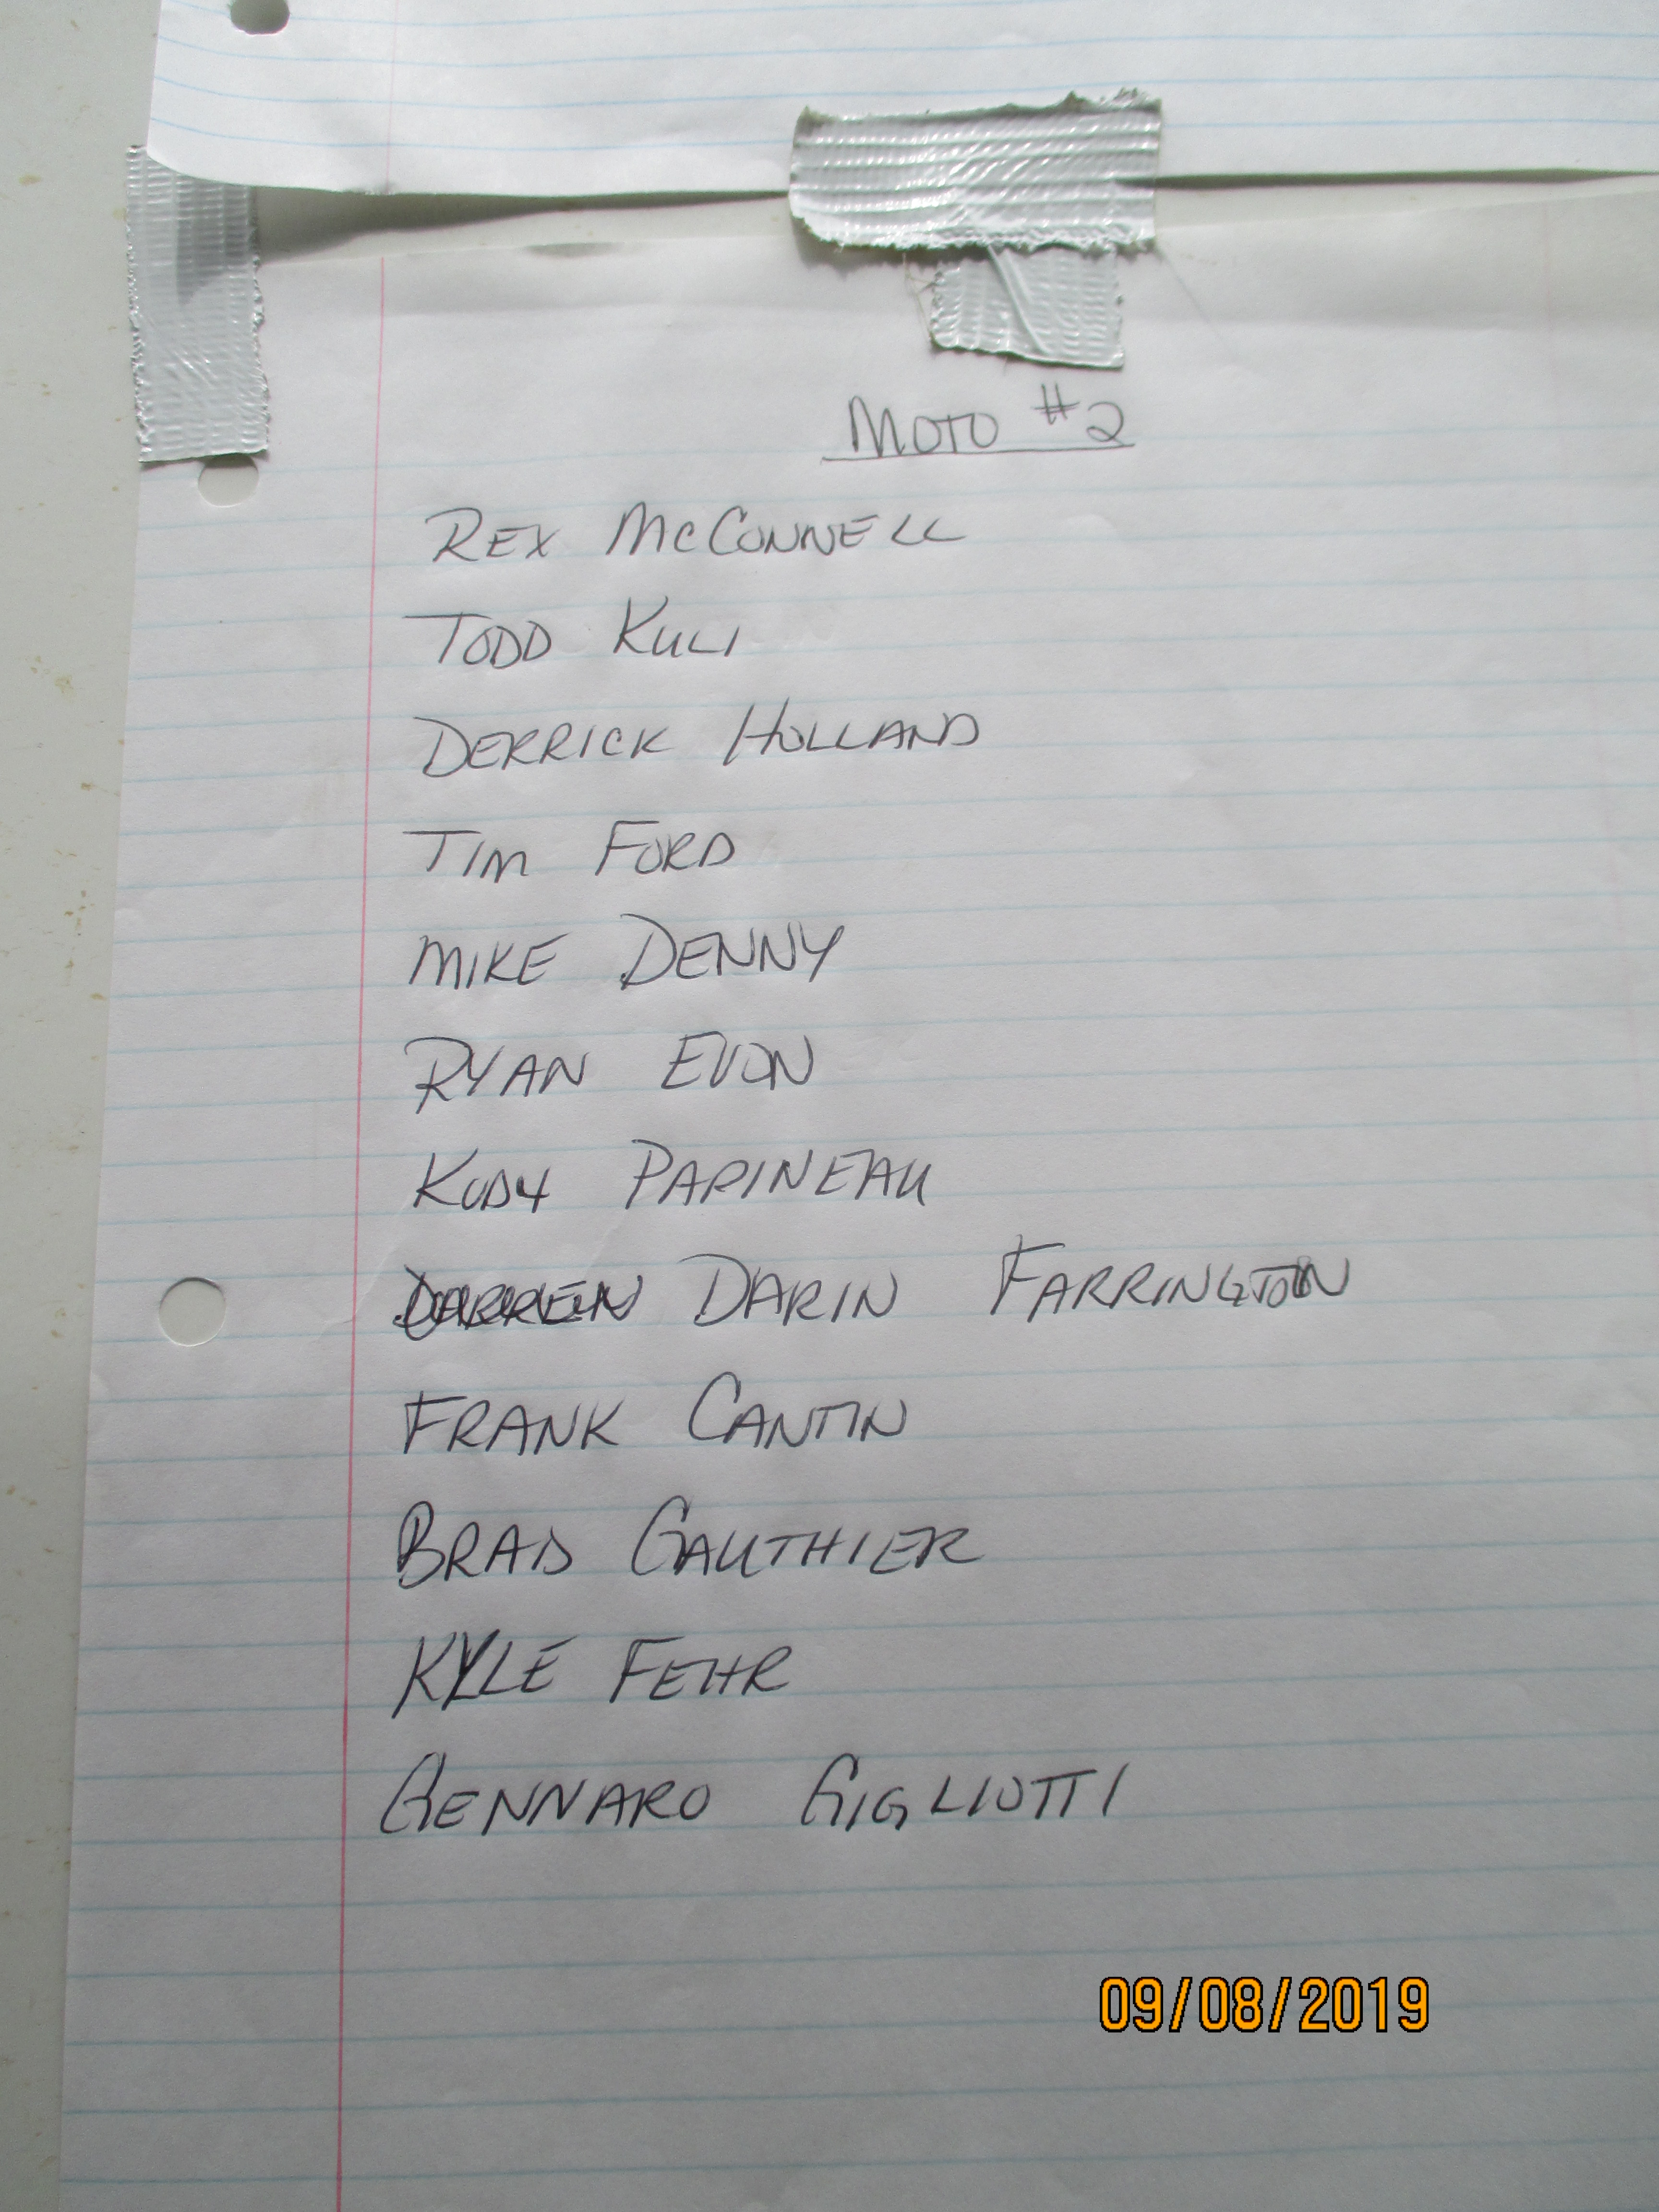 MOTO #2
REX McCONNELL
TODD KULI
DERRICK HOLLAND
TIM FORD
MIKE DENNY
RYAN EVON
KODY PARINEAU
DARREN DARIN FARRINGTON
FRANK CANTIN
BRAD GAUTHIER
KYLE FEHR
GENNARO GIGLIOTTI
09/08/2019